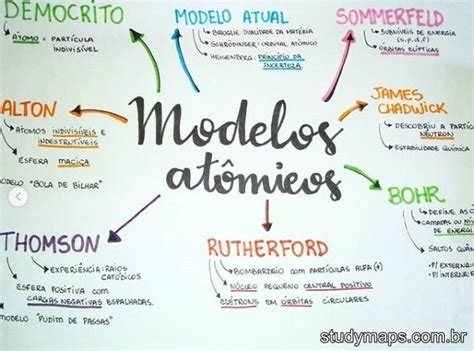 DEMÓCRITO
ÁTOMO = PARTÍCULA
INDIVISÍVEL
MODELO ATUAL
BROGLIE: DUALIDADE DA MATÉRIA
SCHRÖDINGER: ORBITAL ATÔMICO
HEISENBERG: PRINCÍPIO DA
INCERTEZA
SOMMERFELD
SUBNÍVEIS DE ENERGIA
(s,p,d,f)
ÓRBITAS ELÍPTICAS
ALTON
ÁTOMOS INDIVISÍVEIS E
INDESTRUTÍVEIS
ESFERA MACIÇA
MODELO "BOLA DE BILHAR"
Modelos
atômicos
JAMES
CHADWICK
DESCOBRIU A PARTÍC
NEUTRON
ESTABILIDADE QUÍMICA
BOHR
DEFINE AS
CAMADAS OU NÍ
DE ENERGI
SALTOS QUÂN
P/ EXTERNA
P/ INTERNA
THOMSON
EXPERIÊNCIA: RAIOS
CATÓDICOS
ESFERA POSITIVA COM
CARGAS NEGATIVAS ESPALHADAS.
MODELO "PUDIM DE PASSAS"
RUTHERFORD
BOMBARDEIO COM PARTÍCULAS ALFA (+)
NÚCLEO PEQUENO CENTRAL POSITIVO
ELÉTRONS EM ÓRBITAS CIRCULARES
studymaps.com.br